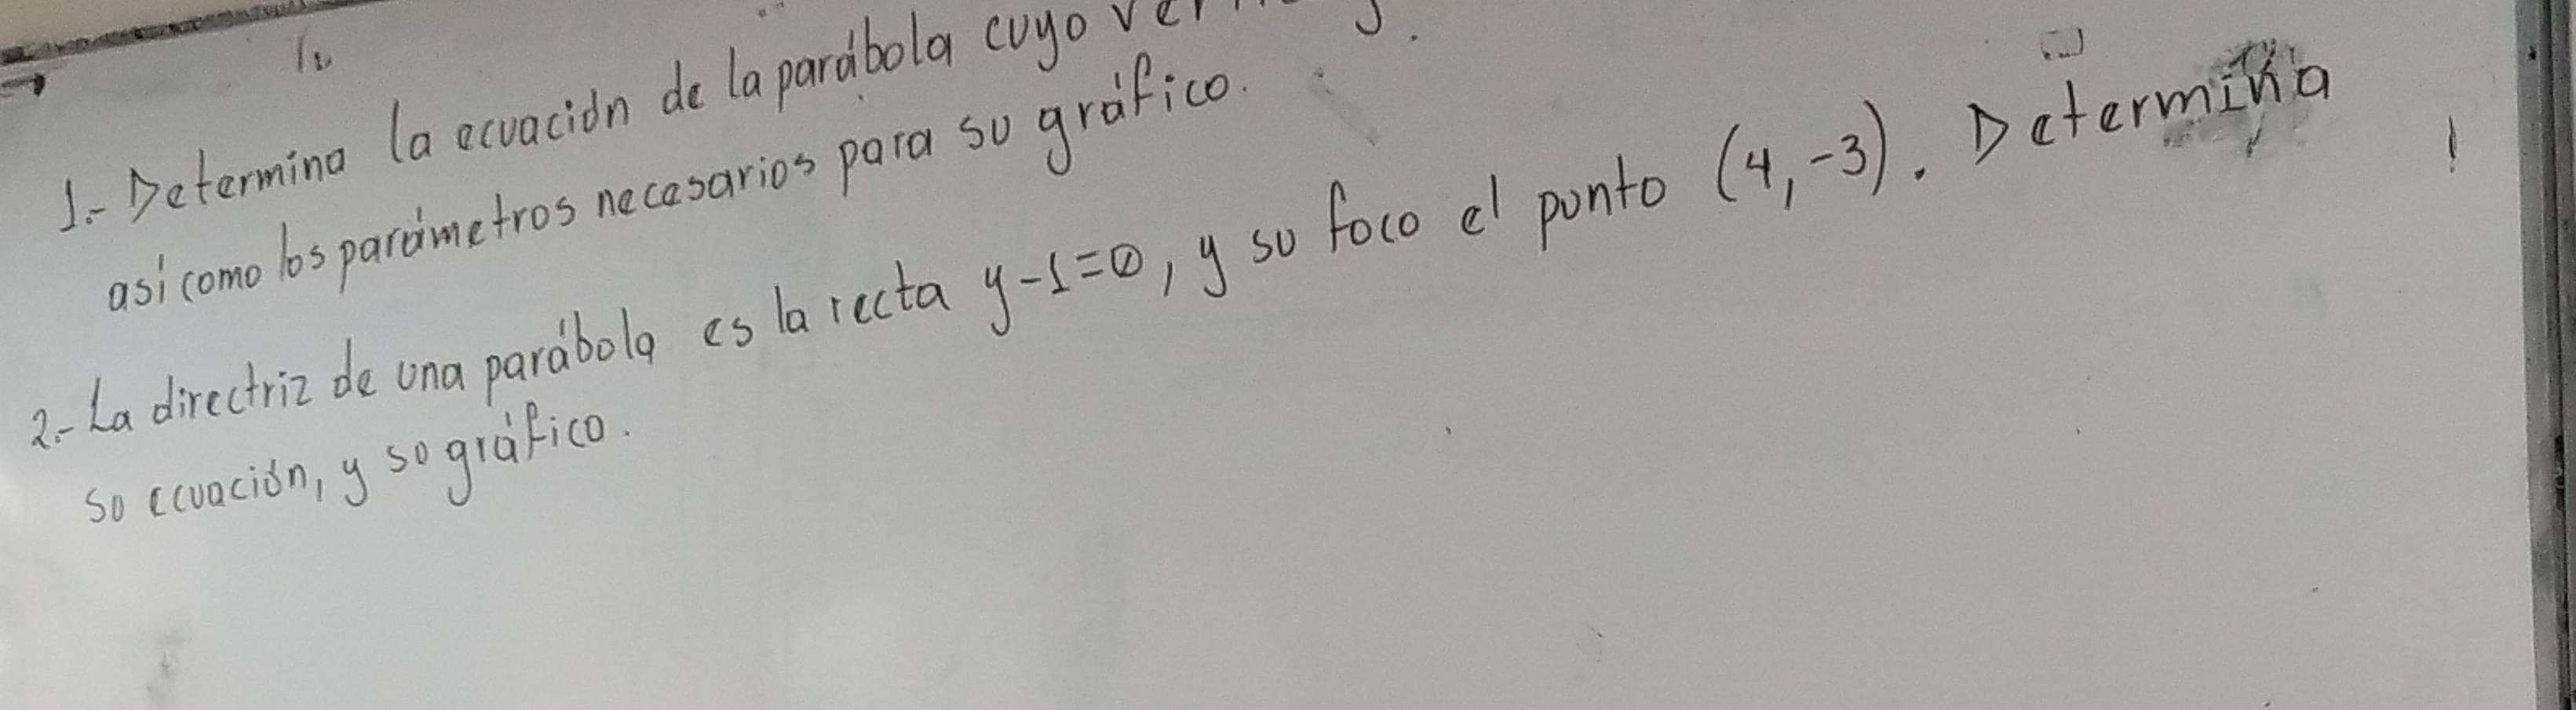 1.- Determina la ecuación de la parábola cuyo
así como los parámetros necesarios para su gráfico.
2.- La directriz de una parábola es la recta y-1=0, y su foco el punto (4,-3). Determina
su ecuación, y su gráfico.